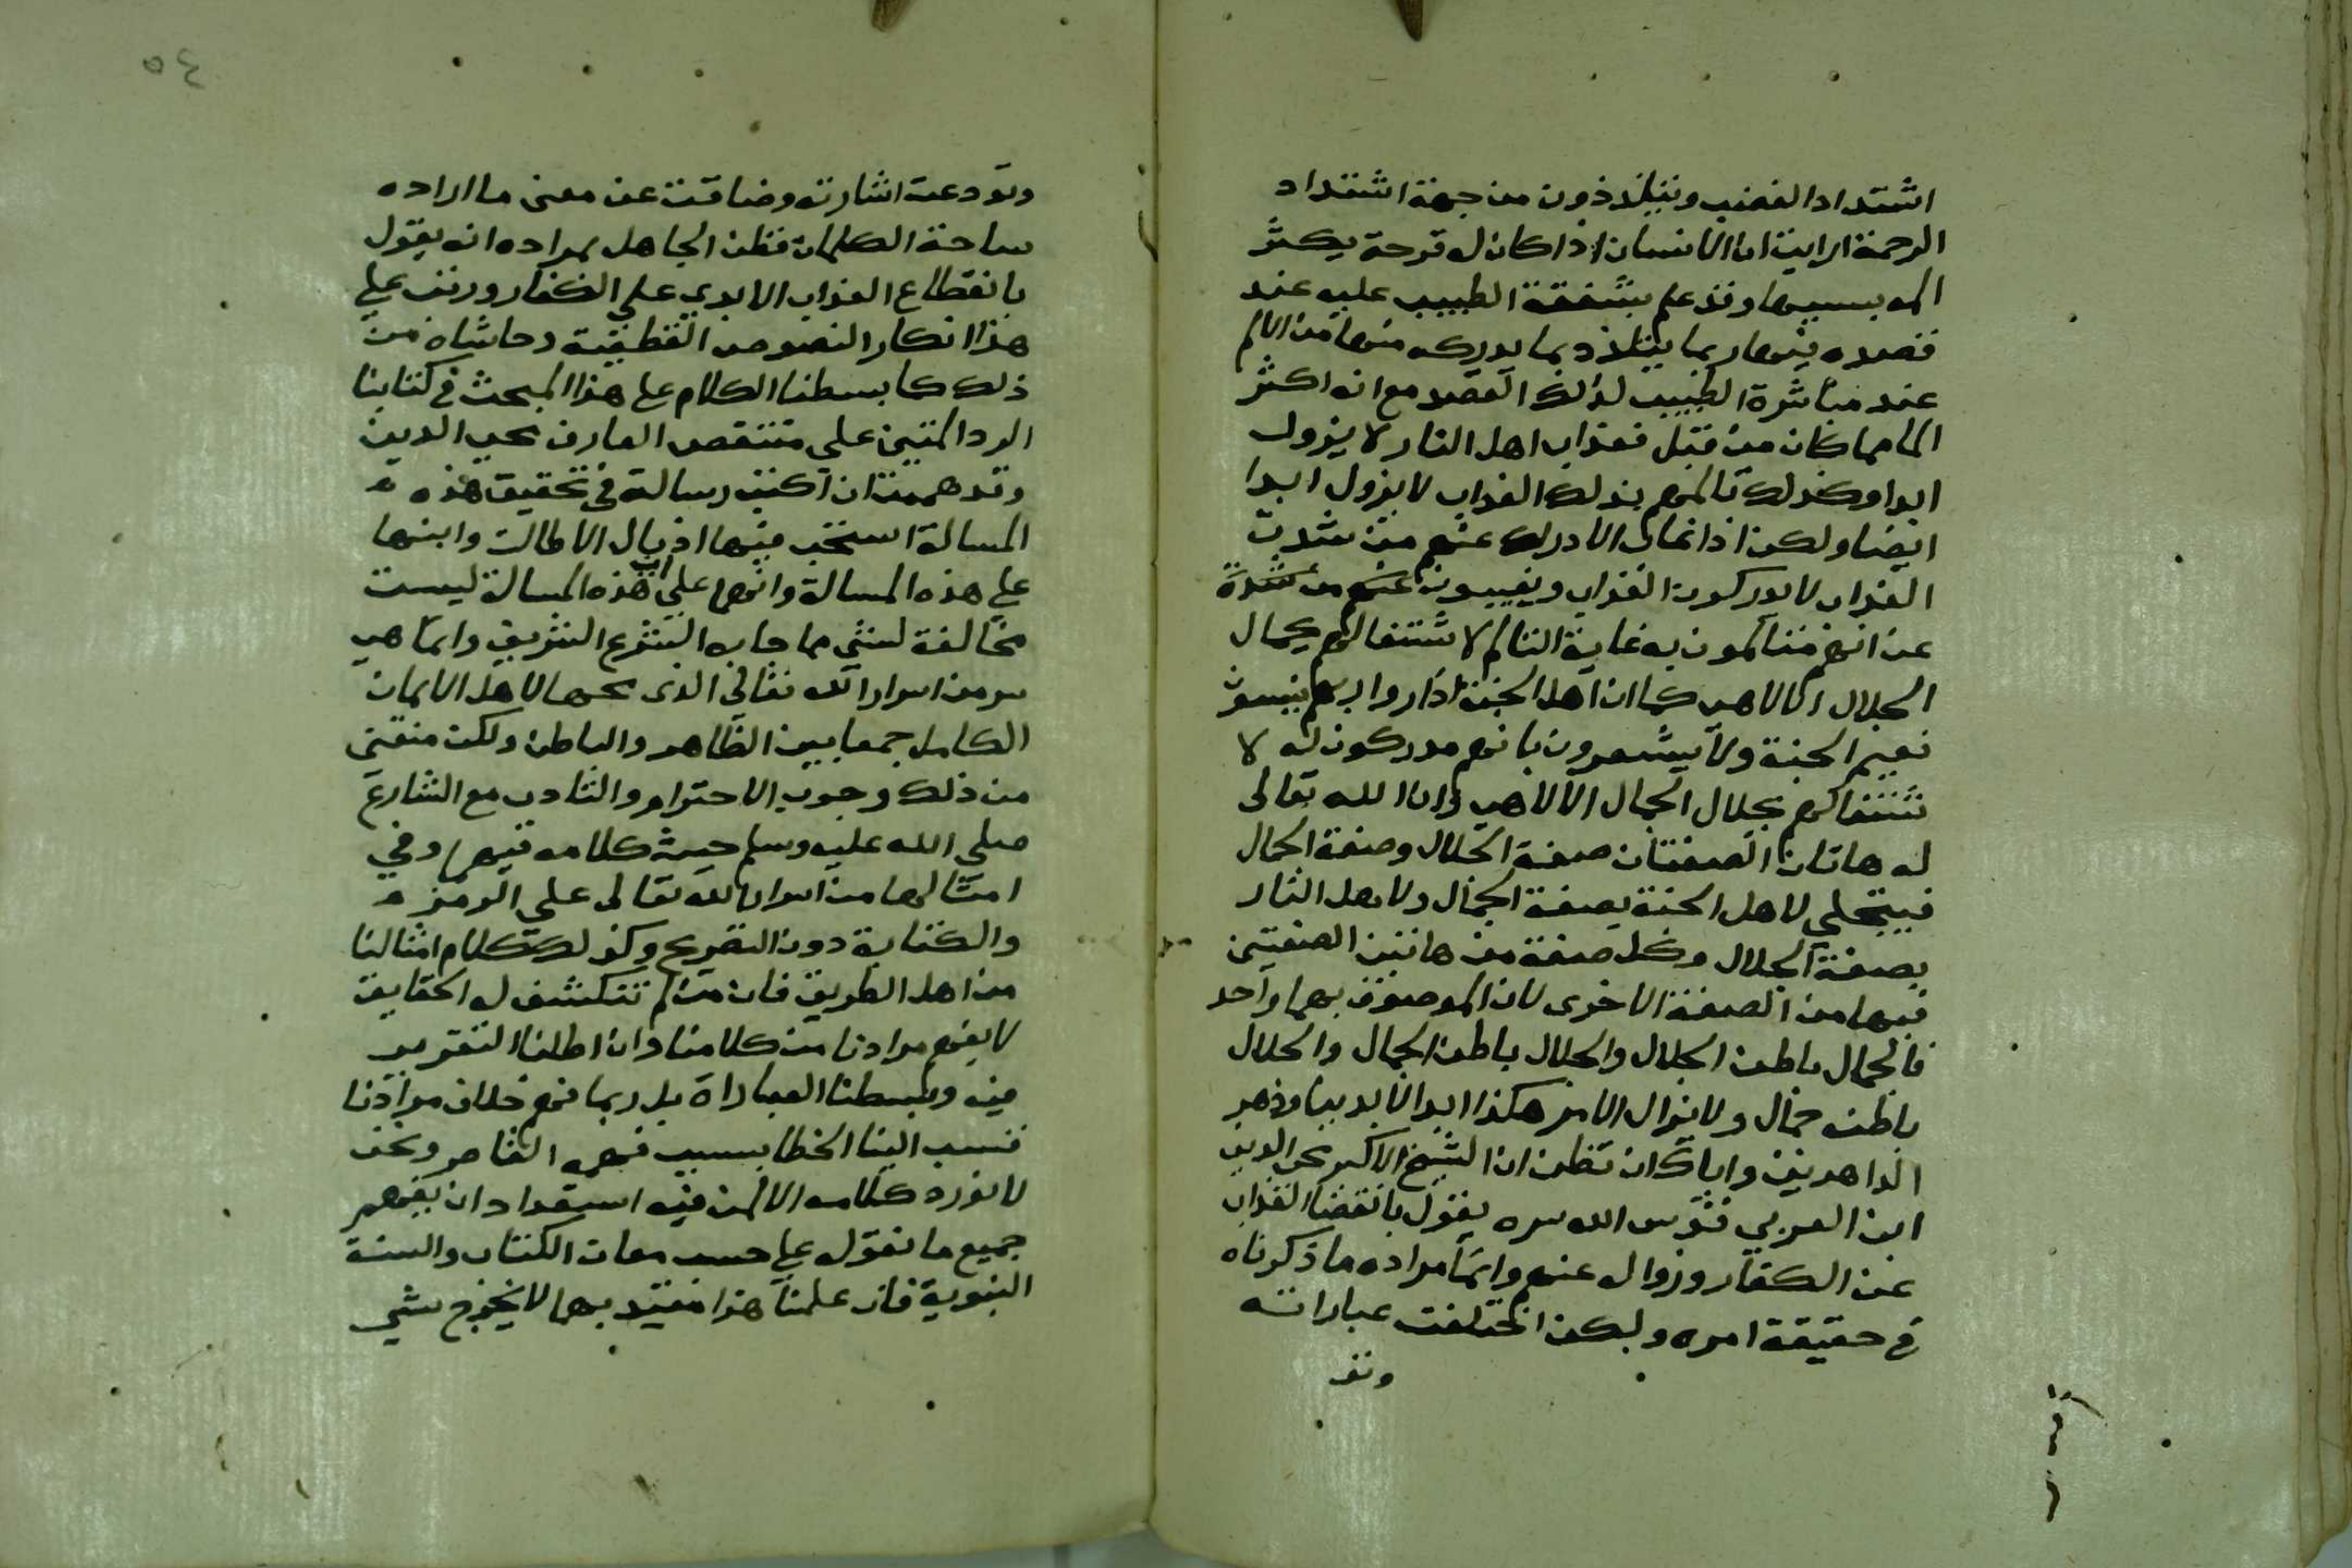 اشتداد الغضب ويتلذذون من جهة اشتداد
الرحمة ارايت ان الانسان اذا كان له قرحة يكثر
المه بسببها وقد علم بشفقة الطبيب عليه عند
فصده فيها ربما يتلذذ بما يدركه منها من الالم
عند مباشرة الطبيب لذلك الفصد مع انه اكثر
الما مما كان من قبل فعذاب اهل النار لا يزول
ابدا وكذلك تالمهم بذلك العذاب لا يزول ابدا
ايضا ولكن اذا غاب الادراك عنهم من شدت
العذاب لا يدركون العذاب ويغيبون عنهم من شدة
عن انهم متالمون به غاية التالم لاشتغالهم بجمال
الجلال الالاهي كما ان اهل الجنة اذا راوا ربهم ينسون
نعيم الجنة ولا يشعرون بانهم مدركون له لا
شتغالهم بجلال الجمال الالاهي وان الله تعالى
له هاتان الصفتان صفة الجلال وصفة الجمال
فيتجلى لاهل الجنة بصفة الجمال ولاهل النار
بصفة الجلال وكل صفة من هاتين الصفتين
فيها من الصفة الاخرى لان الموصوف بهما واحد
فالجمال باطن الجلال والجلال باطن الجمال والجلال
باطنه جمال ولا يزال الامر هكذا ابد الابديين ودهر
الداهرين واياك ان تظن ان الشيخ الاكبر محي الدين
ابن العربي قدس الله سره يقول بانقضا العذاب
عن الكفار وزواله عنهم وانما مراده ما ذكرناه
في حقيقة امره ولكن اختلفت عباراته
وتو
٥٤
وتودعت اشارته وضاقت عن معنى ما اراده
ساحة الكلمات فظن الجاهل بمراده انه يقول
بانقطاع العذاب الابدي علي الكفار ورتب علي
هذا انكار النصوص القطعية وحاشاه من
ذلك كما بسطنا الكلام على هذا المبحث في كتابنا
الرد المتين على متنقص العارف محي الدين
وقد هممت ان اكتب رسالة في تحقيق هذه
المسالة استحب فيها اذيال الاطالت وابنها
على هذه المسالة وانها على ان هذه المسالة ليست
مخالفة لشي مما جابه الشرع الشريف وانما هي
سر من اسرار الله تعالى الذي محها لاهل الايمان
الكامل جمعا بين الظاهر والباطن ولكن منعني
من ذلك وجوب الاحترام والتادب مع الشارع
صلى الله عليه وسلم حيث كلامه فيها وفي
امثالها من اسرار الله تعالى على الرمز
والكناية دون التصريح وكذلك كلام امثالنا
من اهل الطريق فان من لم تنكشف له الحقايق
لا يفهم مرادنا من كلامنا وان اطلنا التقرير
فيه وبسطنا العباراة بل ربما فهم خلاف مرادنا
فنسب الينا الخطا بسبب فهمه القاصر ونحن
لا نورد كلامه الا لمن فيه استعداد ان يفهم
جميع ما نقوله على حسب معان الكتاب والسنة
النبوية فان علمنا هذا مقيد بهما لا يخرج شي